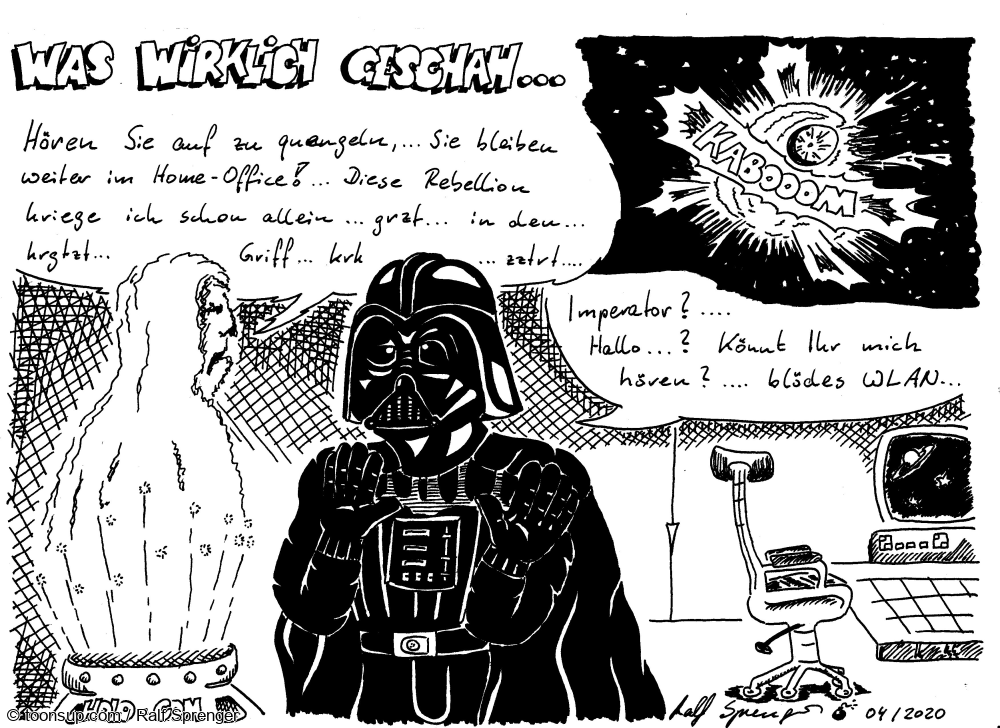 WAS WiRKLiCH GESCHAH...
Hören Sie auf zu quengeln,... Sie bleiben
weiter im Home-Office! ... Diese Rebellion
kriege ich schon allein ... grzt... in den...
krgtzt... Griff... krk ... zztrt....
KABOOOM
Imperator? ....
Hallo...? Könnt Ihr mich
hören? .... blödes WLAN...
HOLO-COM
©toonsup.com / Ralf Sprenger
Ralf Sprenger 04/2020